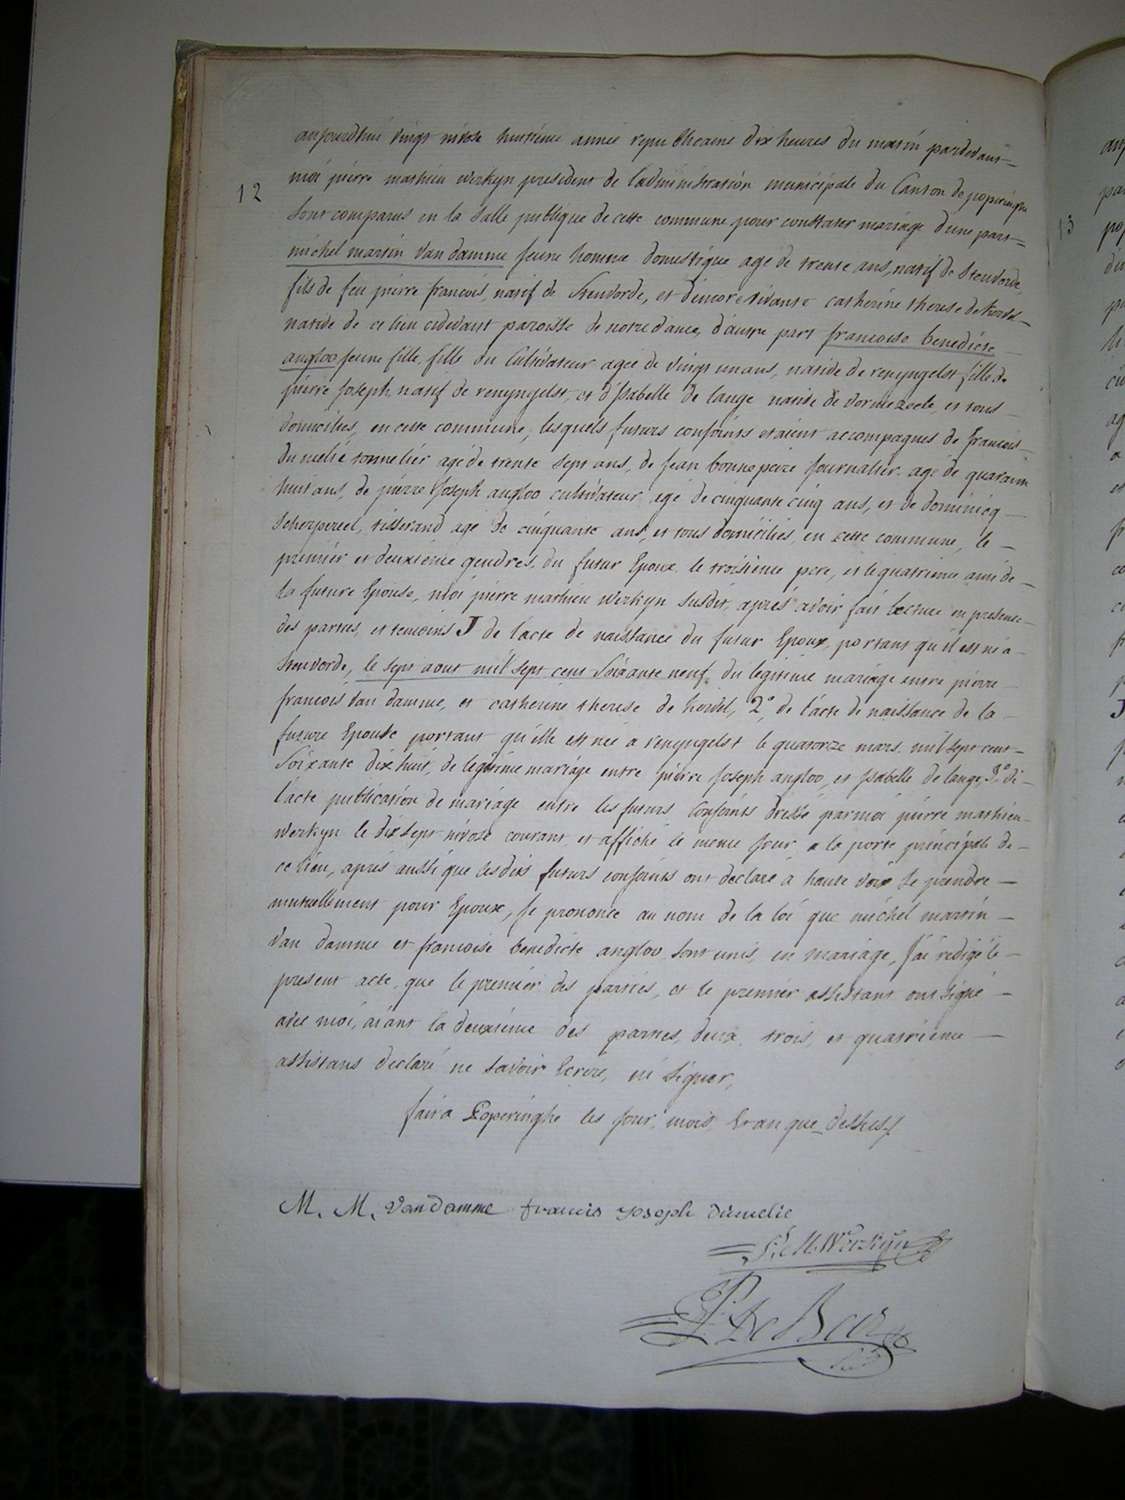 aujourdhui vingt nivôse huitieme année republicaine dix heures du matin pardevant
12
moi pierre mathieu werkyn president de l'administration municipale du Canton de poperinghe
sont comparus en la salle publique de cette commune pour constater mariage d'une part
michel martin van damme jeune homme domestique agé de trente ans, natif de Steuvorde
fils de feu pierre françois, natif de Steuvorde, et d'encore vivante catherine therese de
native de ce lieu cidevant paroisse de notre dame, d'autre part francoise benedicte
angloo jeune fille, fille du Cultivateur agée de vingt un ans, native de renyngelst fille de
pierre Joseph natif de renyngelst, et d'Isabelle de lange native de vormezeele, et tous
domiciliés, en cette commune, lesquels futurs conjoints etaient accompagnés de francois
dumelié tonnelier agé de trente sept ans, de jean bonnepeire journalier agé de quarante
huit ans, de pierre Joseph angloo cultivateur agé de cinquante cinq ans, et de dominicq
Scherpereel, tisserand agé de cinquante ans, et tous domiciliés, en cette commune, le
premier et deuxieme gendres, du futur Epoux, le troisieme pere, et le quatrieme ami de
la future Epouse, moi pierre mathieu werkyn susdit, aprés avoir fait lecture en presence
des parties, et temoins I de l'acte de naissance du futur Epoux, portant qu'il est né a
Steuvorde, le sept aout mil sept cent soixante neuf, du legitime mariage entre pierre
francois van damme, et catherine therese de 2° de l'acte de naissance de la
future Epouse portant qu'elle est née a renyngelst le quatorze mars mil sept cent
soixante dix huit, de legitime mariage entre pierre Joseph angloo, et Isabelle de lange, 3° de
l'acte publication de mariage entre les futurs Conjoints dressé par moi pierre mathieu
werkyn le dix sept nivose courant et affiché le meme jour a la porte principale de
ce lieu, aprés aussi que lesdits futurs conjoints ont declaré à haute voix se prendre
mutuellement pour Epoux, Je prononce au nom de la loi que michel martin
van damme et francoise benedicte angloo sont unis en mariage, J'ai redigé le
present acte, que le premier des parties, et le premier assistant ont signé
avec moi, aiant la deuxieme des parties, deux, trois, et quatrieme
assistans declaré ne savoir Ecrire, ni signer,
fait a Poperinghe les jour, mois, Et an que dessus
M. M. van damme francis joseph dumelie
P. M. Werkyn
P. De Beer